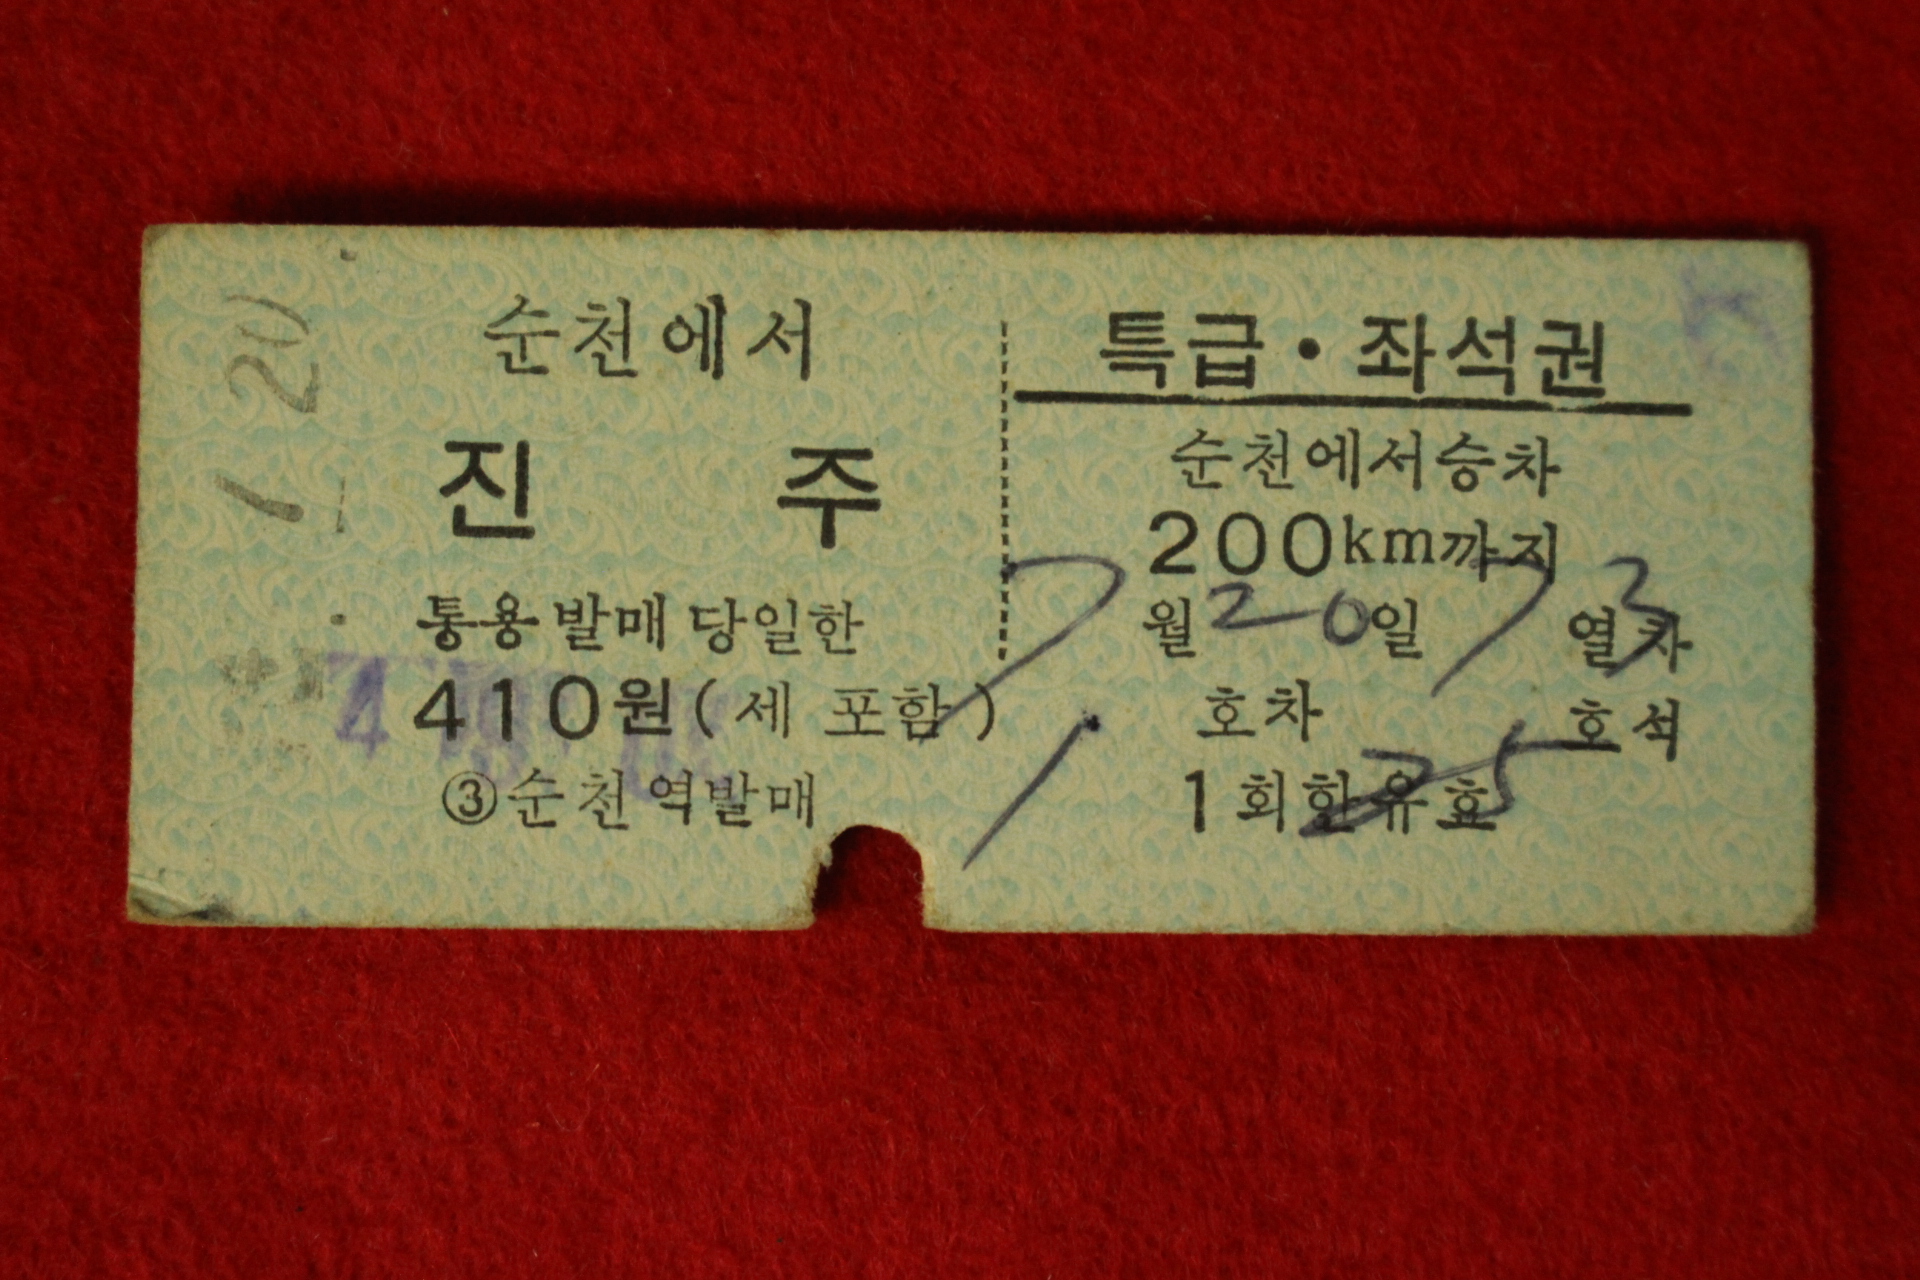 순천에서
진 주
통용 발매 당일한
410원(세 포함)
③순천역발매
특급・좌석권
순천에서승차
200km까지
7월20일 73열차
1호차 25호석
1회한유효